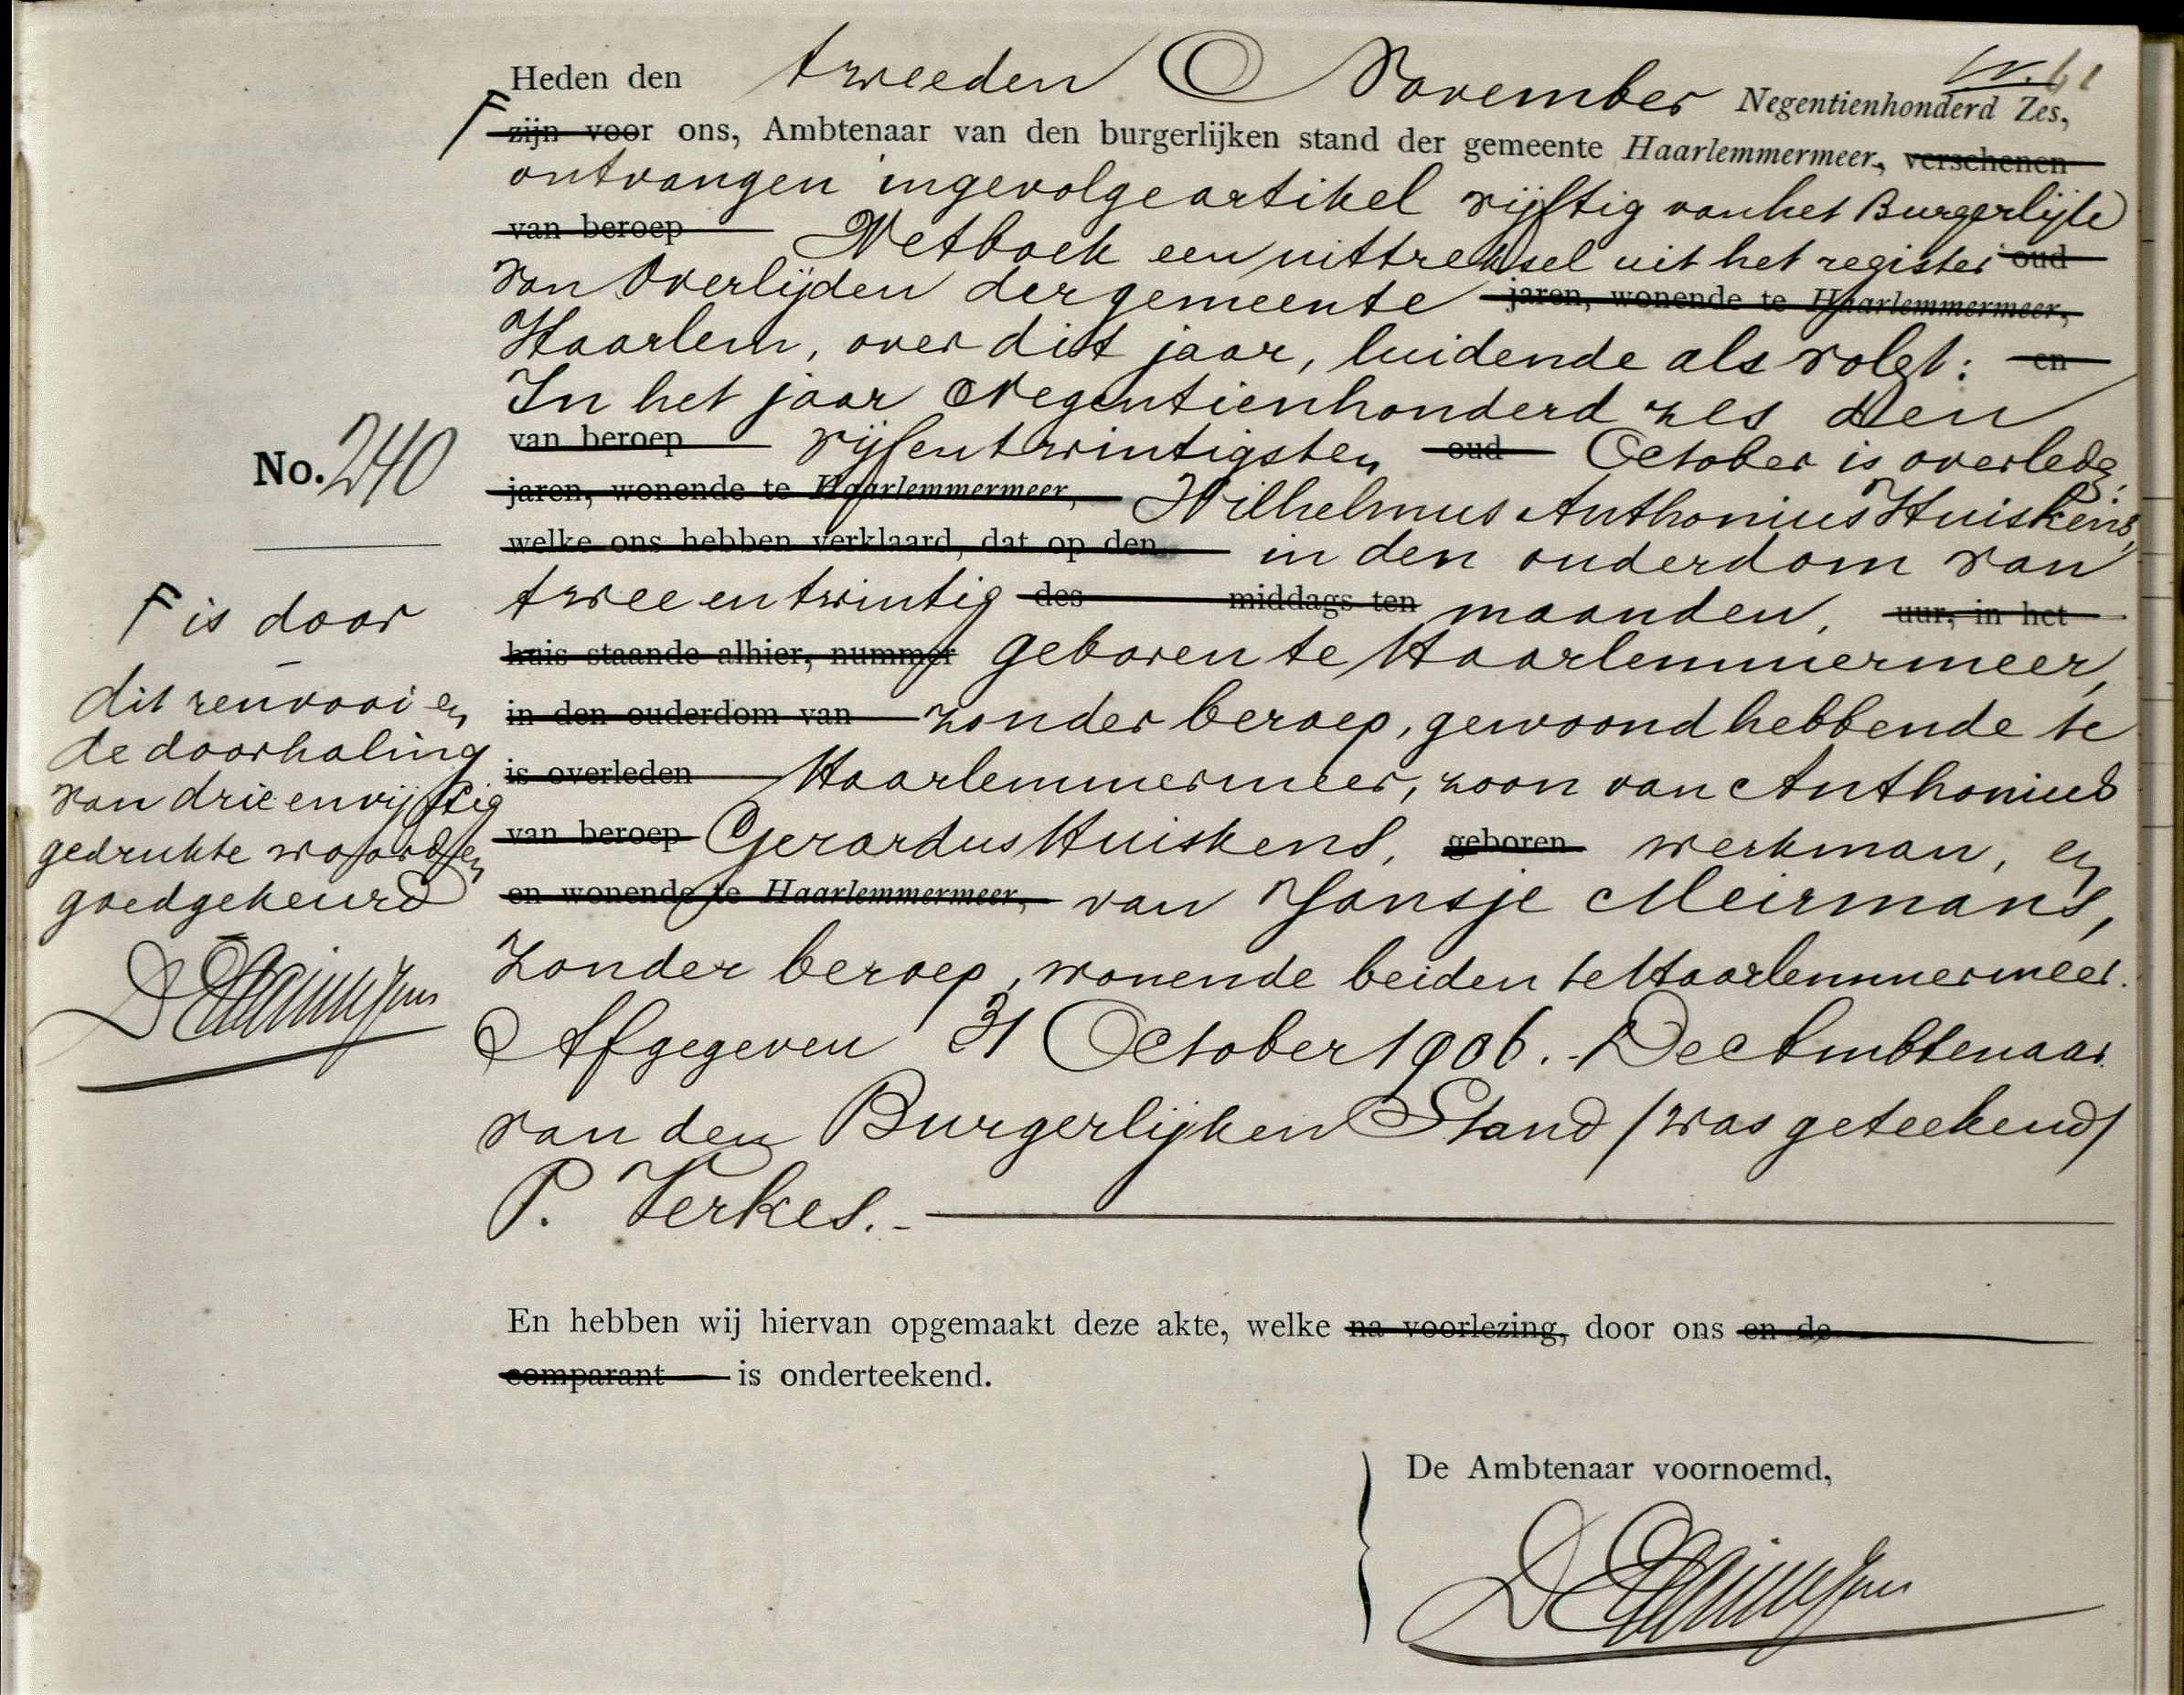 Heden den tweeden November Negentienhonderd Zes,
F zijn voor ons, Ambtenaar van den burgerlijken stand der gemeente Haarlemmermeer, verschenen
ontvangen ingevolge artikel vijftig van het Burgerlijke
van beroep Wetboek een uittreksel uit het register oud
van Overlijden der gemeente jaren, wonende te Haarlemmermeer,
Haarlem, over dit jaar, luidende als volgt: en
In het jaar Negentienhonderd zes den
van beroep vijfentwintigsten oud October is overleden:
No. 240
jaren, wonende te Haarlemmermeer, Wilhelmus Anthonius Huiskens,
welke ons hebben verklaard, dat op den in den ouderdom van
twee en twintig des middags ten maanden, uur, in het
huis staande alhier, nummer geboren te Haarlemmermeer,
in den ouderdom van zonder beroep, gewoond hebbende te
is overleden Haarlemmermeer, zoon van Anthonius
van beroep Gerardus Huiskens, geboren werkman, en
en wonende te Haarlemmermeer, van Jansje Meirmans,
zonder beroep, wonende beiden te Haarlemmermeer.
Afgegeven 31 October 1906. De Ambtenaar
van den Burgerlijken Stand /was geteekend/
P. Verkes.
F is door
dit renvooi en
de doorhaling
van drie en vijftig
gedrukte woorden
goedgekeurd
En hebben wij hiervan opgemaakt deze akte, welke na voorlezing, door ons en de
comparant is onderteekend.
De Ambtenaar voornoemd,